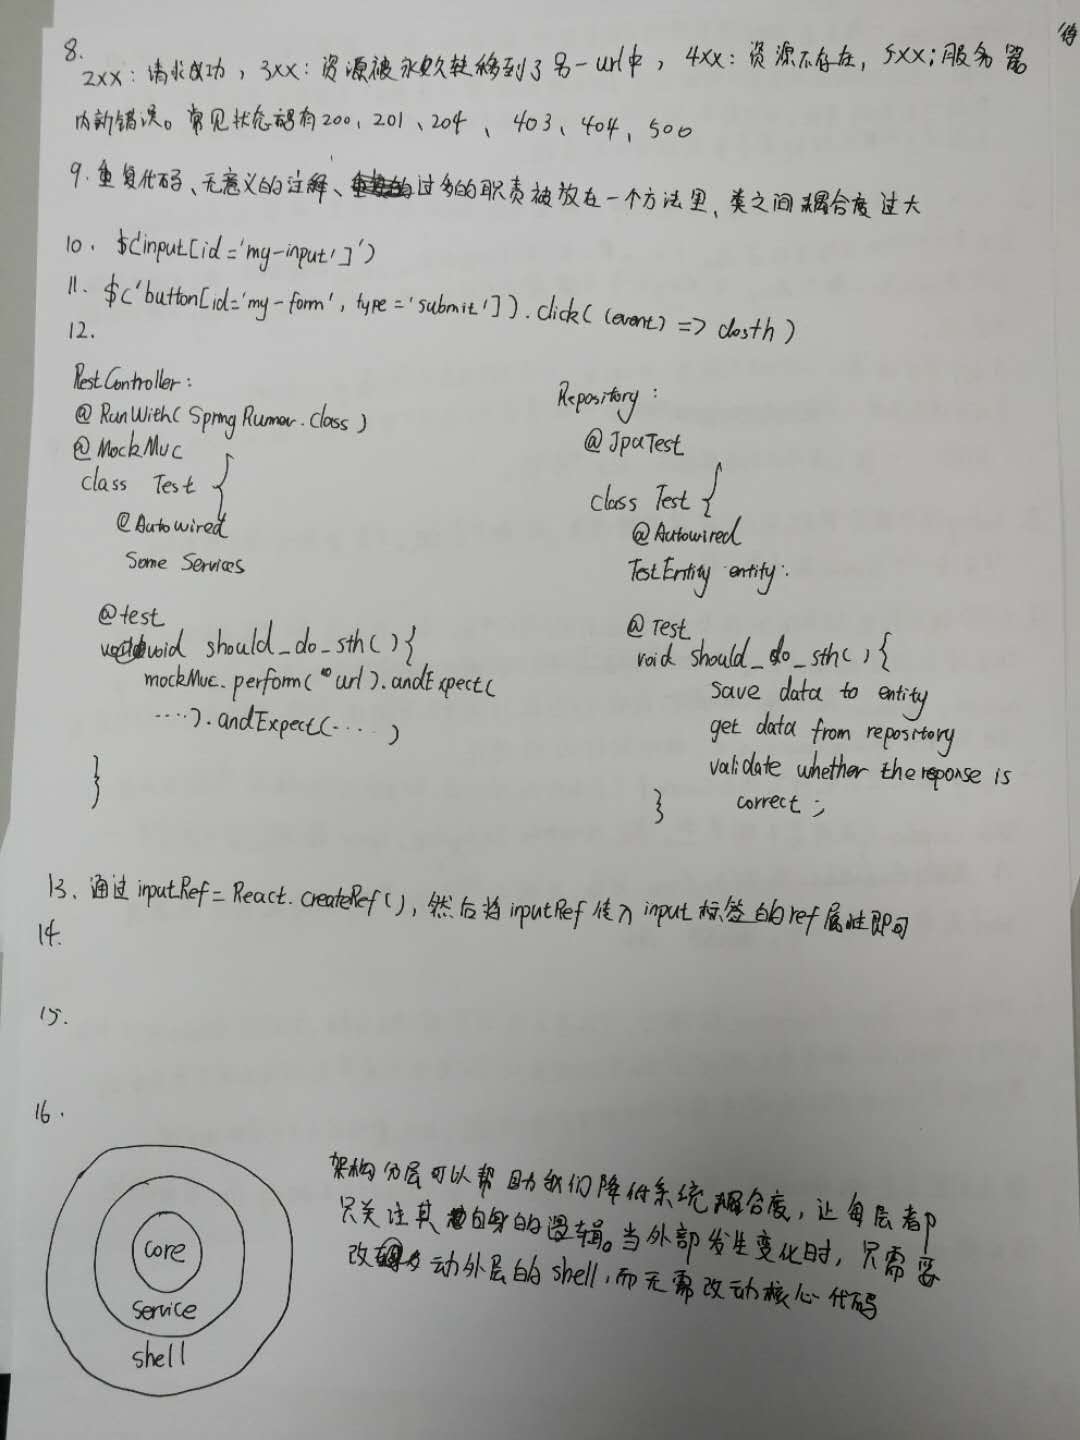 8.
2xx：请求成功，3xx：资源被永久转移到了另一url中，4xx：资源不存在，5xx：服务器
内部错误。常见状态码有200、201、204、403、404、500
9. 重复代码、无意义的注释、过多的职责被放在一个方法里、类之间耦合度过大
10. $('input[id='my-input']')
11. $('button[id='my-form', type='submit']).click((event) => dosth)
12.
RestController:
@RunWith(SpringRunner.class)
@MockMvc
class Test {
@Autowired
Some Services
@test
void should_do_sth(){
mockMvc.perform("url).andExpect(
....).andExpect(....)
}
Repository:
@JpaTest
class Test {
@Autowired
TestEntity entity;
@Test
void should_do_sth(){
save data to entity
get data from repository
validate whether the reponse is
correct;
}
13. 通过inputRef = React.createRef()，然后将inputRef传入input标签的ref属性即可
14.
15.
16.
core
service
shell
架构分层可以帮助我们降低系统耦合度，让每层都
只关注其自身的逻辑。当外部发生变化时，只需要
改动外层的shell，而无需改动核心代码